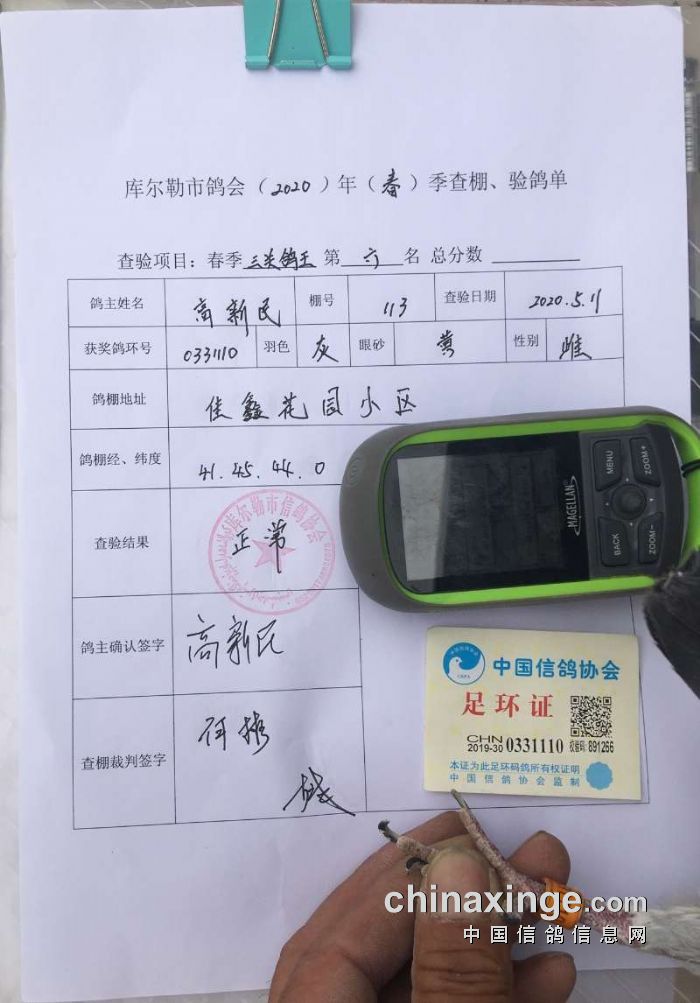 库尔勒市鸽会（2020）年（春）季查棚、验鸽单
查验项目：春季三关鸽王 第 六 名 总分数
鸽主姓名 高新民 棚号 113 查验日期 2020.5.11
获奖鸽环号 0331110 羽色 灰 眼砂 黄 性别 雌
鸽棚地址 佳鑫花园小区
鸽棚经、纬度 41.45.44.0
查验结果 正常
库尔勒市信鸽协会
鸽主确认签字 高新民
查棚裁判签字
MENU
ZOOM+
BACK
ZOOM-
MAGELLAN
中国信鸽协会
足环证
CHN
2019-30 0331110 校验码: 891256
本证为此足环码鸽所有权证明
中国信鸽协会监制
chinaxinge.com
中国信鸽信息网